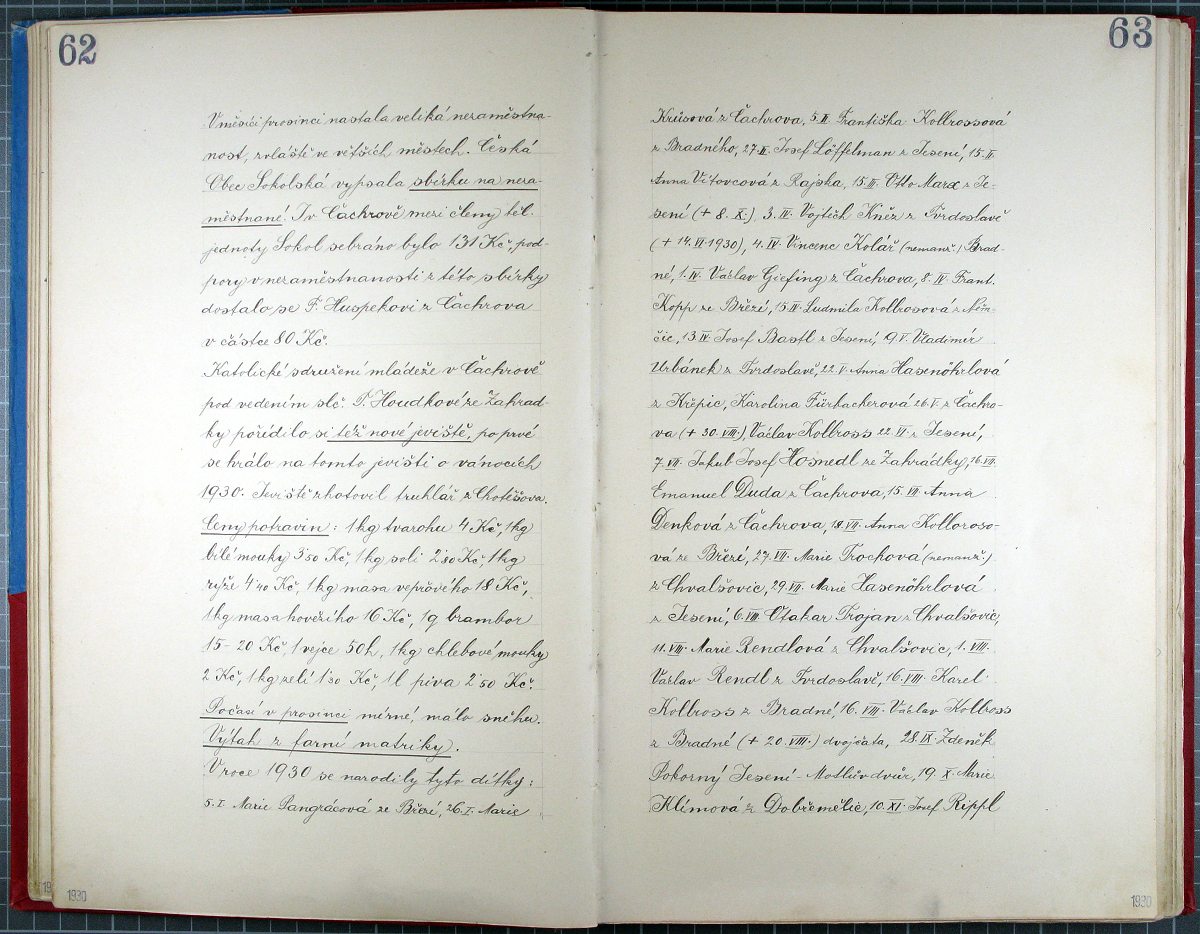 62
V měsíci prosinci nastala veliká nezaměstna-
nost, zvláště ve větších městech. Česká
Obec Sokolská vypsala sbírku na neza-
městnané. I v Čachrově mezi členy těl.
jednoty Sokol sebráno bylo 131 Kč, pod-
pory v nezaměstnanosti z této sbírky
dostalo se F. Huspekovi z Čachrova
v částce 80 Kč.
Katolické sdružení mládeže v Čachrově
pod vedením slč. F. Houdkové ze Zahrad-
ky pořídilo si též nové jeviště, po prvé
se hrálo na tomto jevišti o vánocích
1930. Jeviště zhotovil truhlář z Chotěšova.
Ceny potravin: 1 kg tvarohu 4 Kč, 1 kg
bílé mouky 3·50 Kč, 1 kg soli 2·80 Kč, 1 kg
rýže 4·40 Kč, 1 kg masa vepřového 18 Kč,
1 kg masa hovězího 16 Kč, 1 q brambor
15-20 Kč, 1 vejce 50 h, 1 kg chlebové mouky
2 Kč, 1 kg zelí 1·50 Kč, 1 l piva 2·50 Kč.
Počasí v prosinci mírné, málo sněhu.
Výtah z farní matriky.
V roce 1930 se narodily tyto dítky:
5. I. Marie Pangrácová ze Březí, 26. I. Marie
1930
63
Krůsová z Čachrova, 5. II. Františka Kollrossová
z Bradného, 27. II. Josef Löffelman z Jesení, 15. II.
Anna Vítovcová z Rajska, 15. III. Otto Marx z Je-
sení (+ 8. X.), 3. IV. Vojtěch Kněz z Tvrdoslavě
(+ 14. VI. 1930), 4. IV. Vincenc Kolář (nemanž.) Brad-
né, 1. IV. Václav Giefing z Čachrova, 8. IV. Frant.
Kopp ze Březí, 15. IV. Ludmila Kollrosová z Něm-
čic, 13. IV. Josef Bastl z Jesení, 9. V. Vladimír
Urbánek z Tvrdoslavě, 22. V. Anna Hasenöhrlová
z Křepic, Karolina Fürbacherová 26. V. z Čachro-
va (+ 30. VIII.) Václav Kollross 22. VI. z Jesení,
7. VII. Jakub Josef Hosnedl ze Zahrádky, 16. VII.
Emanuel Duda z Čachrova, 15. VII. Anna
Denková z Čachrova, 18. VII. Anna Kolloroso-
vá ze Březí, 27. VII. Marie Trochová (nemanž.)
z Chvalšovic, 29. VII. Marie Hasenöhrlová
z Jesení, 6. VIII. Otakar Trojan z Chvalšovic,
11. VIII. Marie Rendlová z Chvalšovic, 1. VIII.
Václav Rendl z Tvrdoslavě, 16. VIII. Karel
Kollross z Bradné, 16. VIII. Václav Kollross
z Bradné (+ 20. VIII.) dvojčata, 28. IX. Zdeněk
Pokorný Jesení - Motlův dvůr, 19. X. Marie
Klímová z Dobřemělic, 10. XI. Josef Rippl
1930